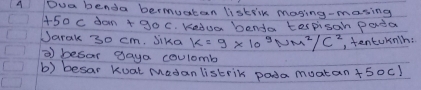 1 Dua benda bermuatan listrik masing-masing
+50 C dan +90 C. Kedua benda terpisah pada
Jarak 30 cm. Jika K = 9 x 10⁹ Nm²/C², tentuknlh:
a) besar gaya coulomb
b) besar kuat Medan listrik pada muatan +50C!